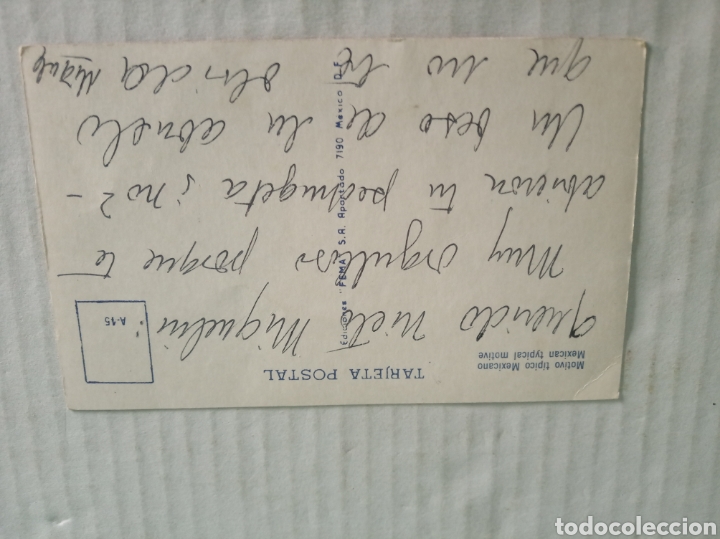 Motivo típico Mexicano
Mexican typical motive
TARJETA POSTAL
A-15
Ediciones "FEMA" S.A. Apartado 7190 Mexico D.F.
Querido nieto Miguelin
Muy orgulloso porque te
abrieron tu
¿no? -
Un beso de tu abuelo
que no te
olvida Miguel
todocoleccion